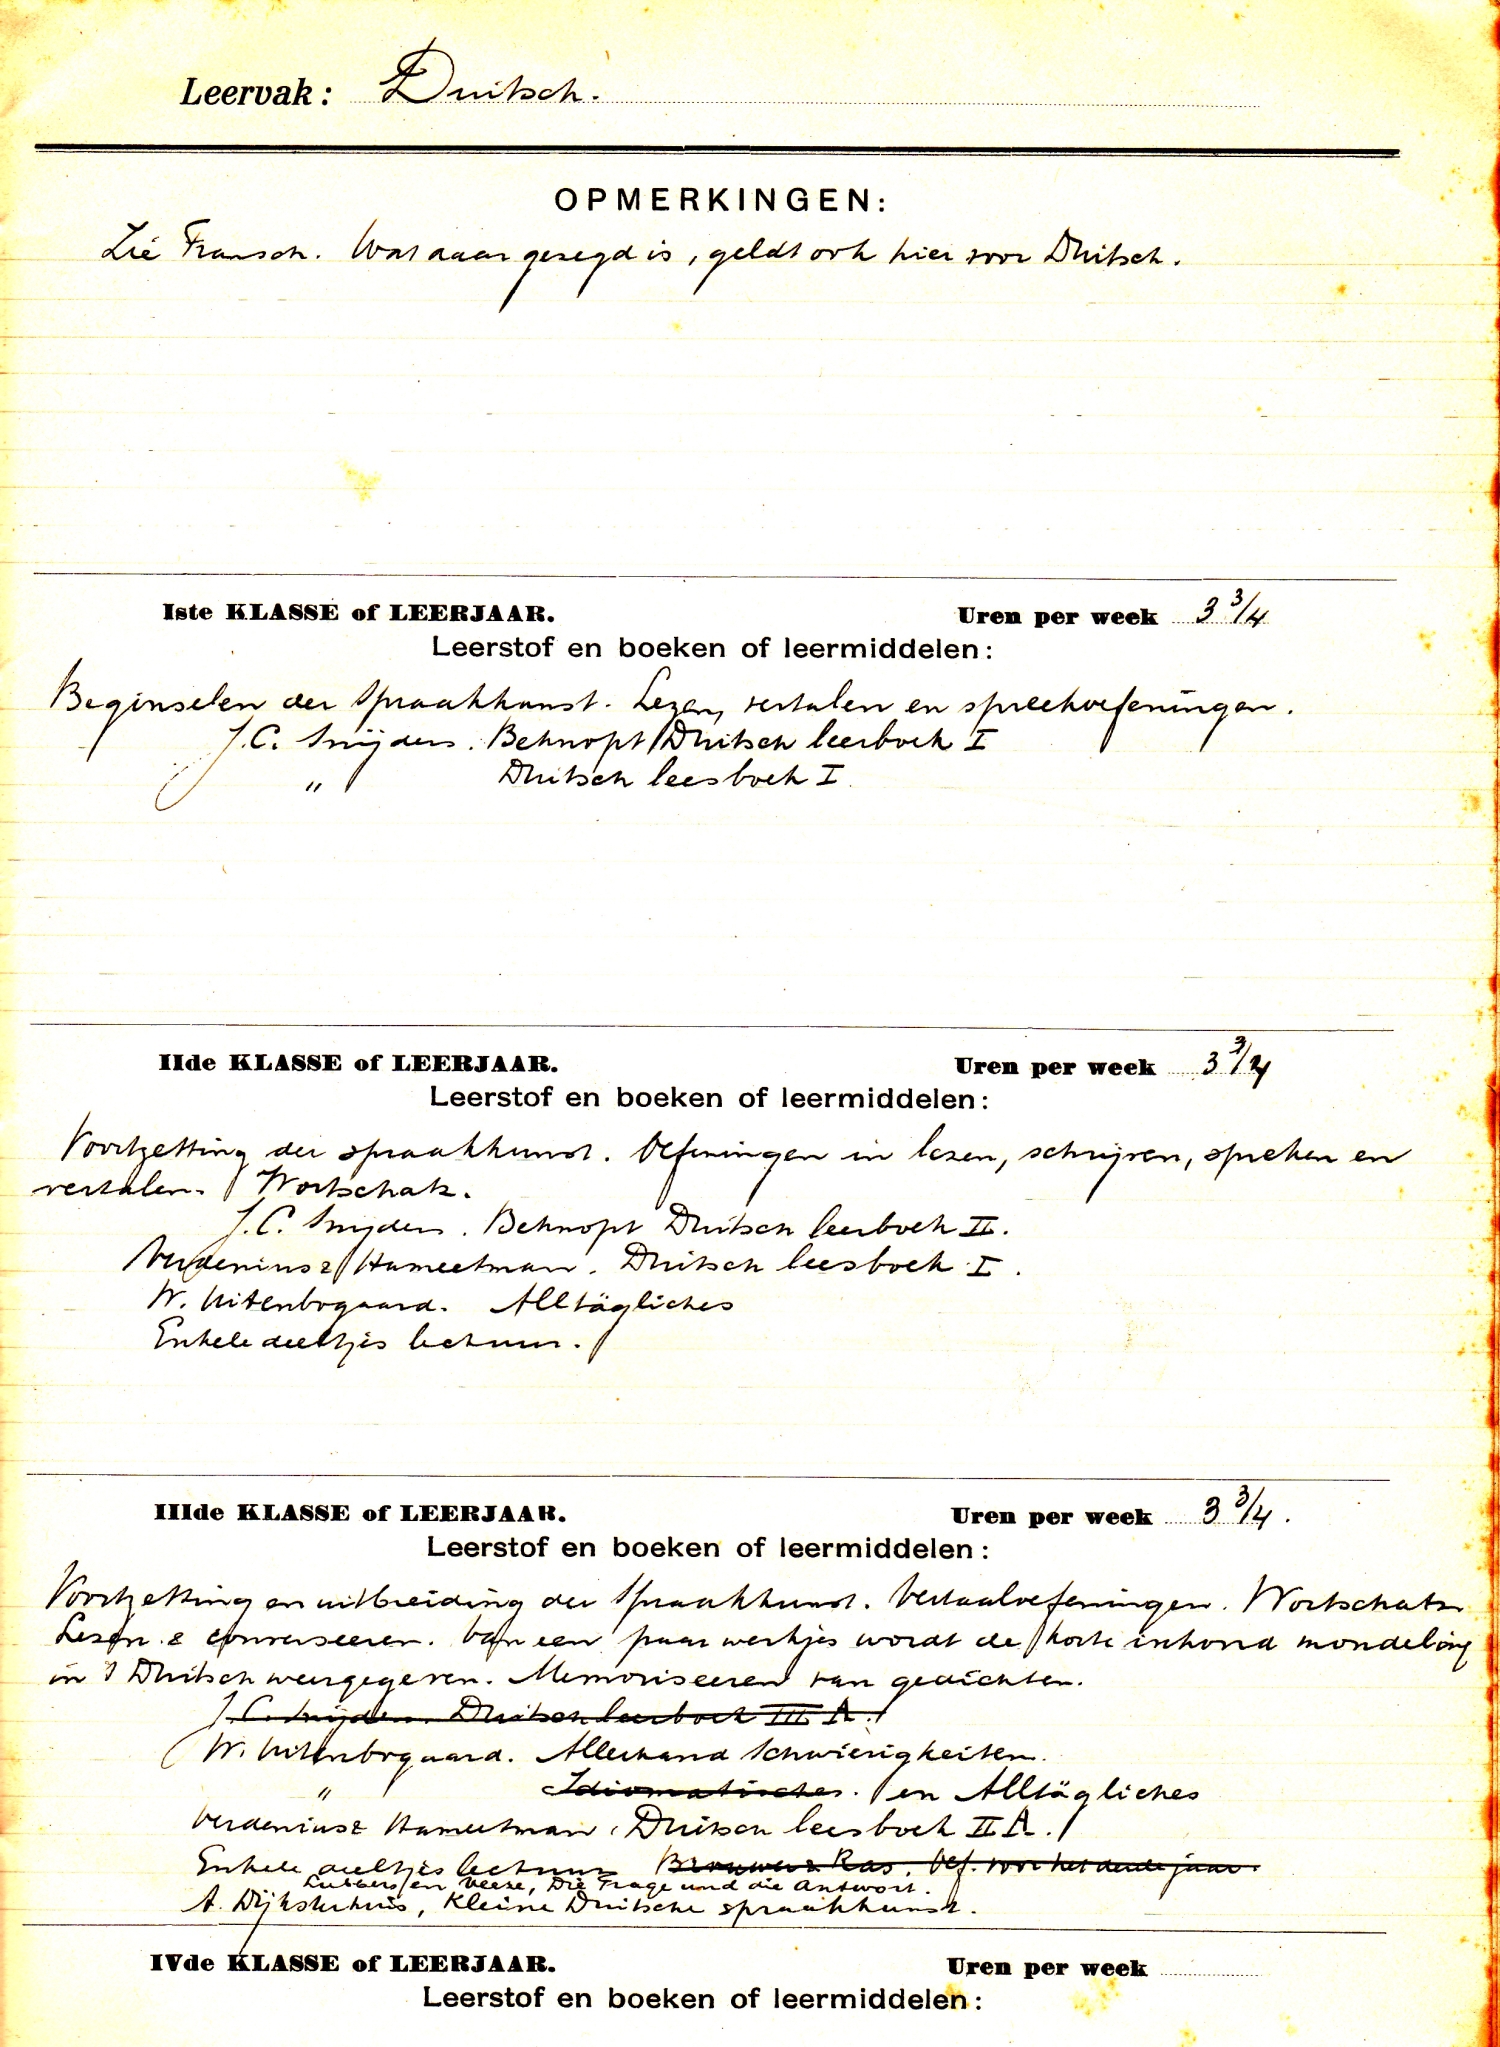 Leervak: Duitsch.
OPMERKINGEN:
Zie Fransch. Wat daar gezegd is, geldt ook hier voor Duitsch.
Iste KLASSE of LEERJAAR. Uren per week 3 3/4
Leerstof en boeken of leermiddelen:
Beginselen der Spraakkunst. Lezen, vertalen en spreekoefeningen.
J.C. Snijders. Beknopt Duitsch leerboek I
" Duitsch leesboek I.
IIde KLASSE of LEERJAAR. Uren per week 3 3/4
Leerstof en boeken of leermiddelen:
Voortzetting der spraakkunst. Oefeningen in lezen, schrijven, spreken en
vertalen. Wortschatz.
J.C. Snijders. Beknopt Duitsch leerboek II.
Verdenius & Hameetman. Duitsch leesboek I.
W. Uitenbogaard. Alltägliches
Enkele deeltjes lectuur.
IIIde KLASSE of LEERJAAR. Uren per week 3 3/4.
Leerstof en boeken of leermiddelen:
Voortzetting en uitbreiding der Spraakkunst. Vertaaloefeningen. Wortschatz
Lezen & converseeren. Van een paar werkjes wordt de korte inhoud mondeling
in 't Duitsch weergegeven. Memoriseeren van gedichten.
J.C. Snijders. Duitsch leerboek III A.
W. Uitenbogaard. Allerhand Schwierigkeiten.
" Idiomatisches. en Alltägliches
Verdenius & Hameetman, Duitsch leesboek II A.
Enkele deeltjes lectuur Brouwer & Ras. Oef. voor het derde jaar.
Lubbers en Veeze, Die Frage und die Antwort.
A. Dijksterhuis, Kleine Duitsche spraakkunst.
IVde KLASSE of LEERJAAR. Uren per week
Leerstof en boeken of leermiddelen: